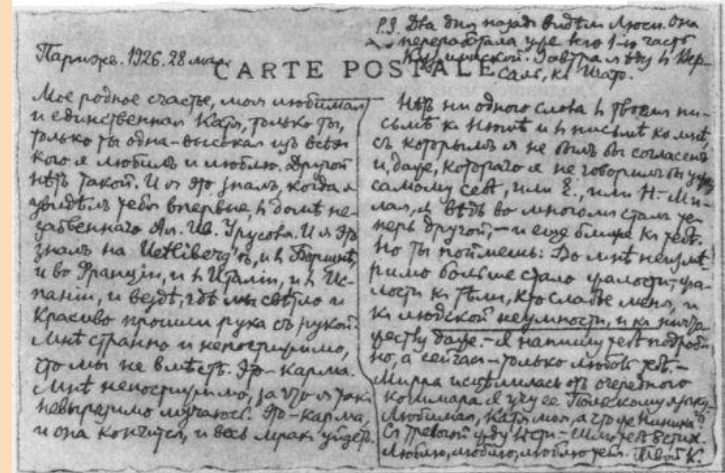 Парижъ. 1926. 28 мая.
CARTE POSTALE
P.S. Два дня назадъ видѣлъ Люси. Она
переработала уже всю 1-ю часть
Завтра ѣду въ
Мое родное счастье, моя любимая
и единственная Катя, только ты,
только ты одна - высокая изъ всѣхъ
кого я любилъ и люблю. Другой
нѣтъ такой. И я это зналъ, когда я
увидѣлъ тебя впервые, въ домѣ не-
забвеннаго Ал. Ив. Урусова. И я это
зналъ на и въ
и во Франціи, и въ Италіи, и въ Ис-
паніи, и вездѣ, гдѣ мы свѣтло и
красиво прошли рука съ рукой.
Мнѣ странно и непостижимо,
что мы не вмѣстѣ. Это - карма.
Мнѣ непостижимо, за что я такъ
невыразимо мучаюсь. Это - карма,
и она кончится, и весь мракъ уйдетъ.
Нѣтъ ни одного слова въ твоемъ пи-
сьмѣ къ Нюшѣ и въ письмѣ ко мнѣ,
съ которымъ я не былъ бы согласенъ
и, даже, котораго я не говорилъ бы
самому себѣ, или Е., или Н. - Ми-
лая, я вѣдь во многомъ сталъ те-
перь другой, - и еще ближе къ тебѣ.
но ты поймешь: Во мнѣ неизмѣ-
римо больше стало жалости, жа-
лости къ тѣмъ, кто слабѣе меня, и
къ людской неумности, и къ ничтож
еству даже. - Я напишу тебѣ подроб-
но, а сейчасъ - только любовь тебѣ. -
Мирра исцѣлилась отъ очередного
кошмара. Я учу ее Польскому языку.
Любимая, Катя моя, а что же Ниника?
Съ тревогой жду вѣсти. - Шлю тебѣ стихи.
Люблю, люблю, люблю тебя. Твой К.